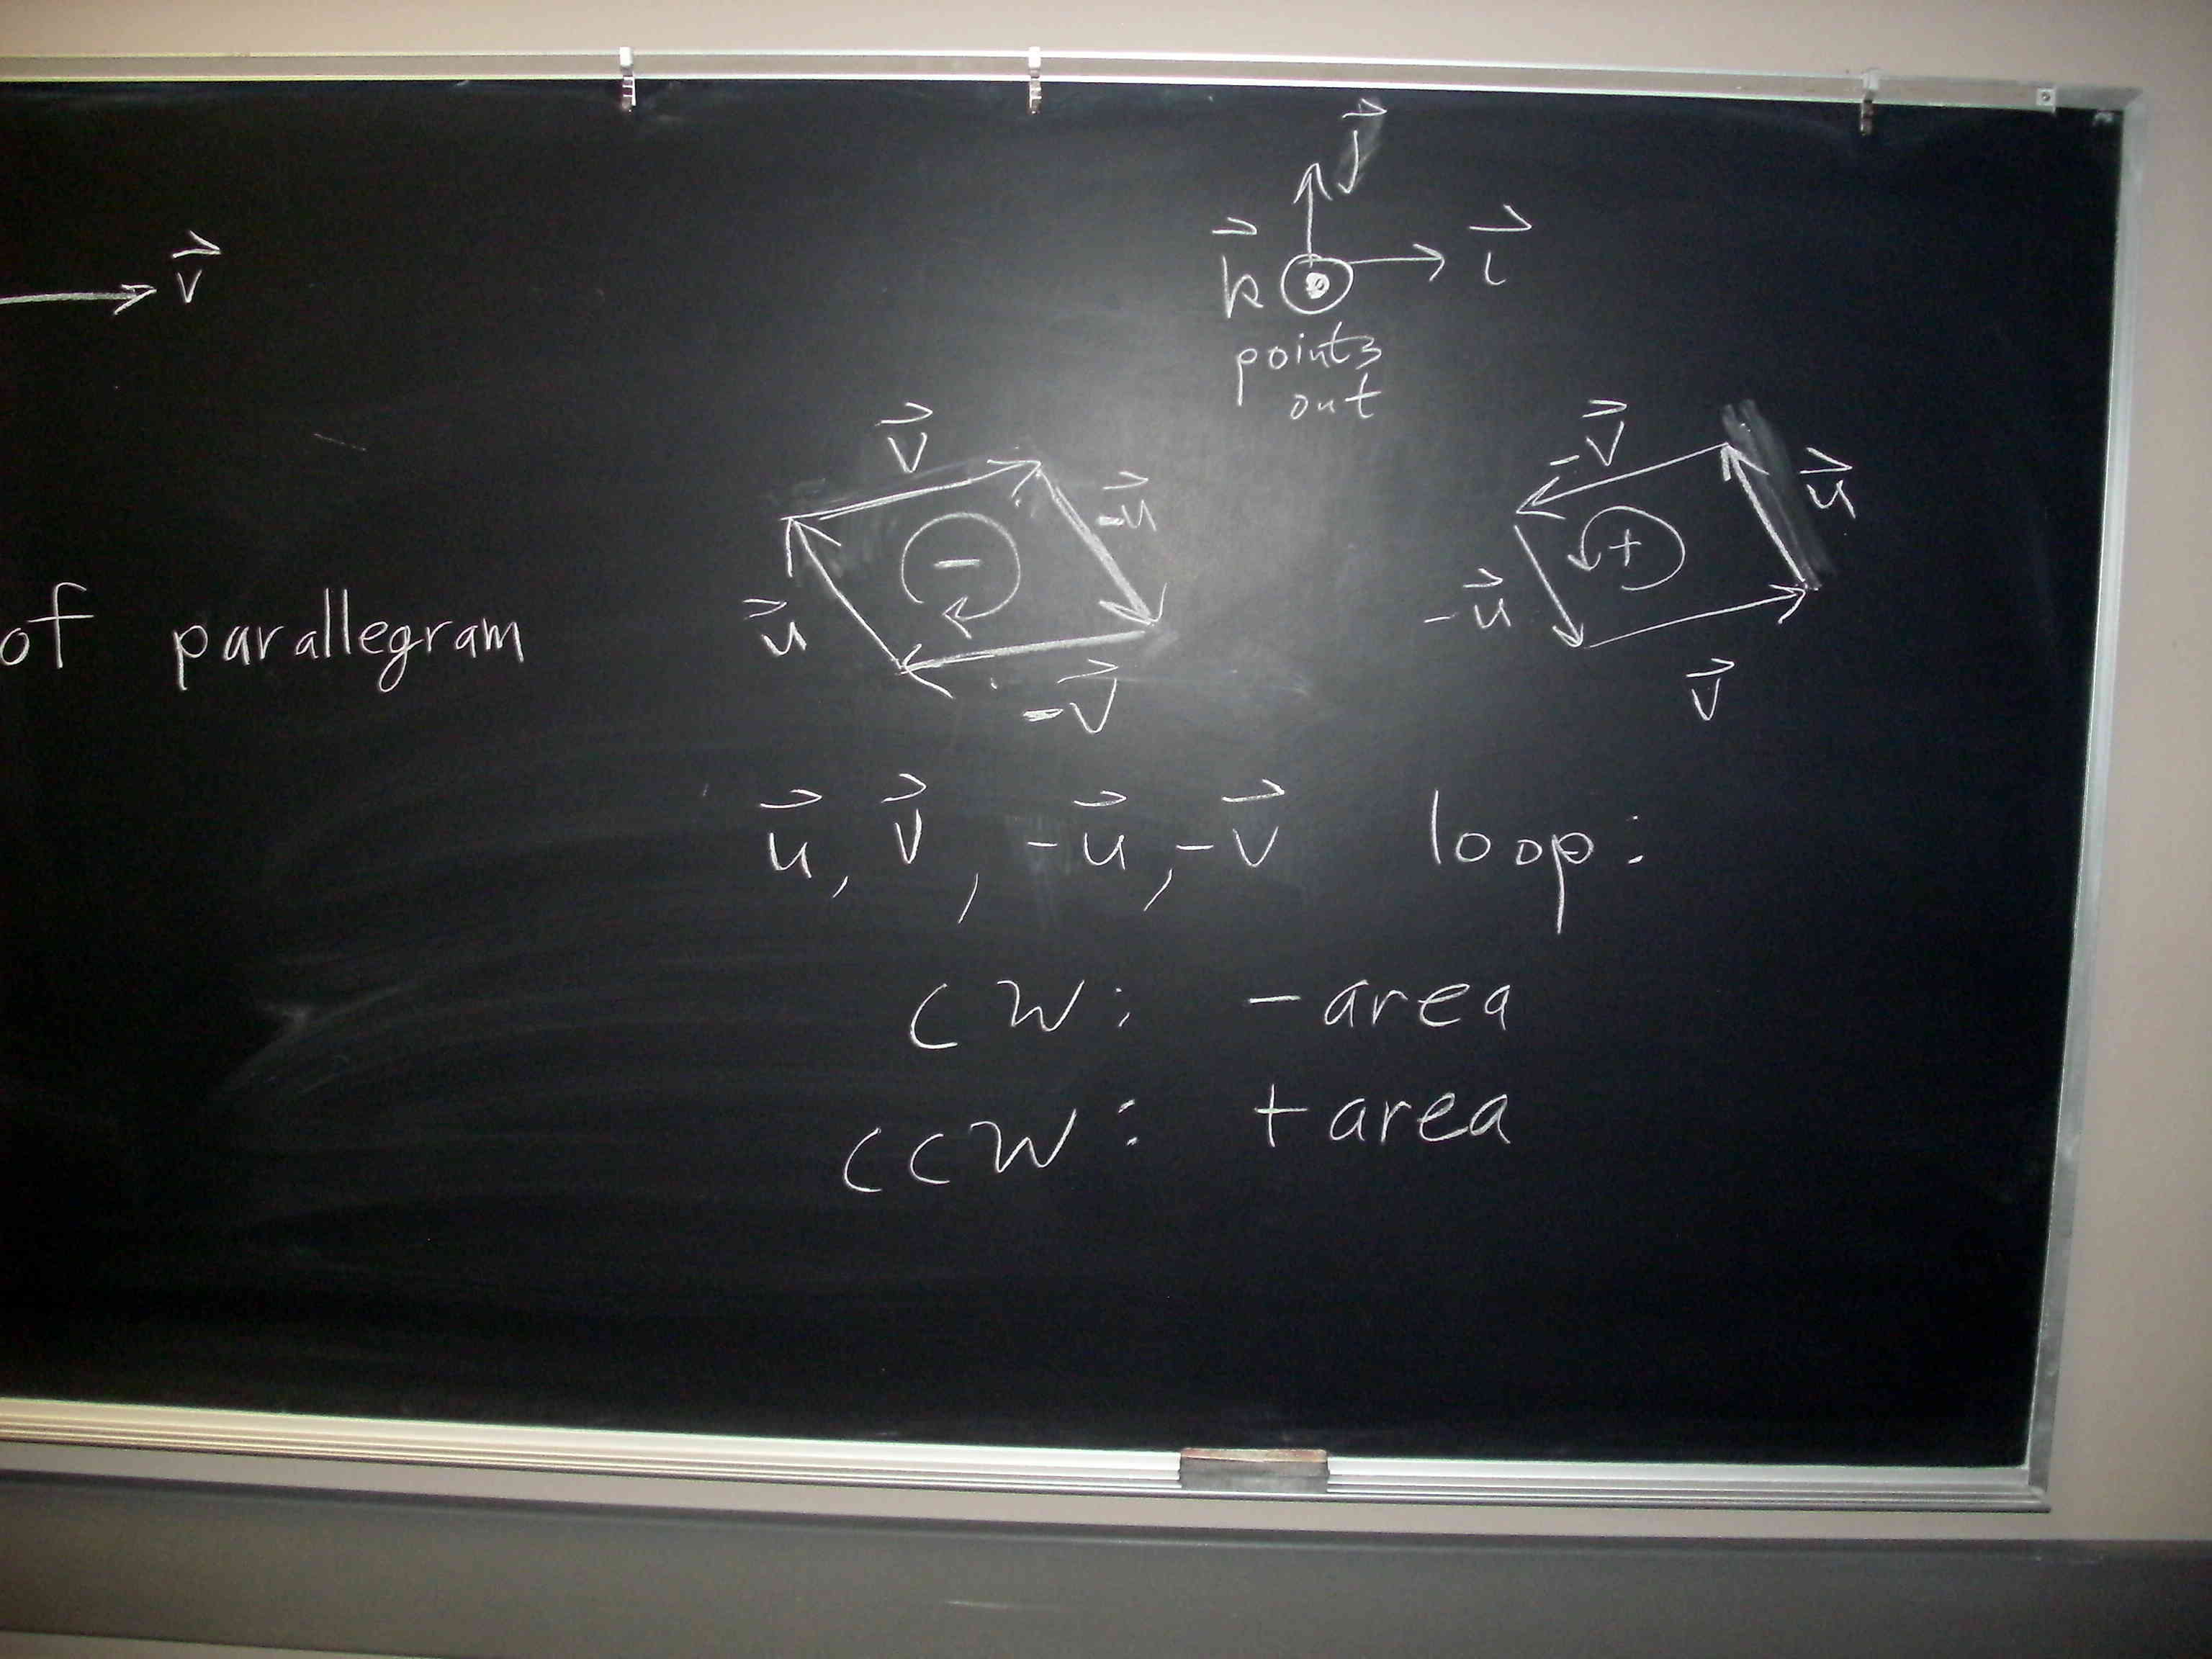 j⃗
v⃗
k⃗ i⃗
points
out
v⃗ -u⃗ -v⃗ u⃗
- +
of parallegram
u⃗ -v⃗ -u⃗ v⃗
u⃗, v⃗, -u⃗, -v⃗ loop:
CW: - area
CCW: + area